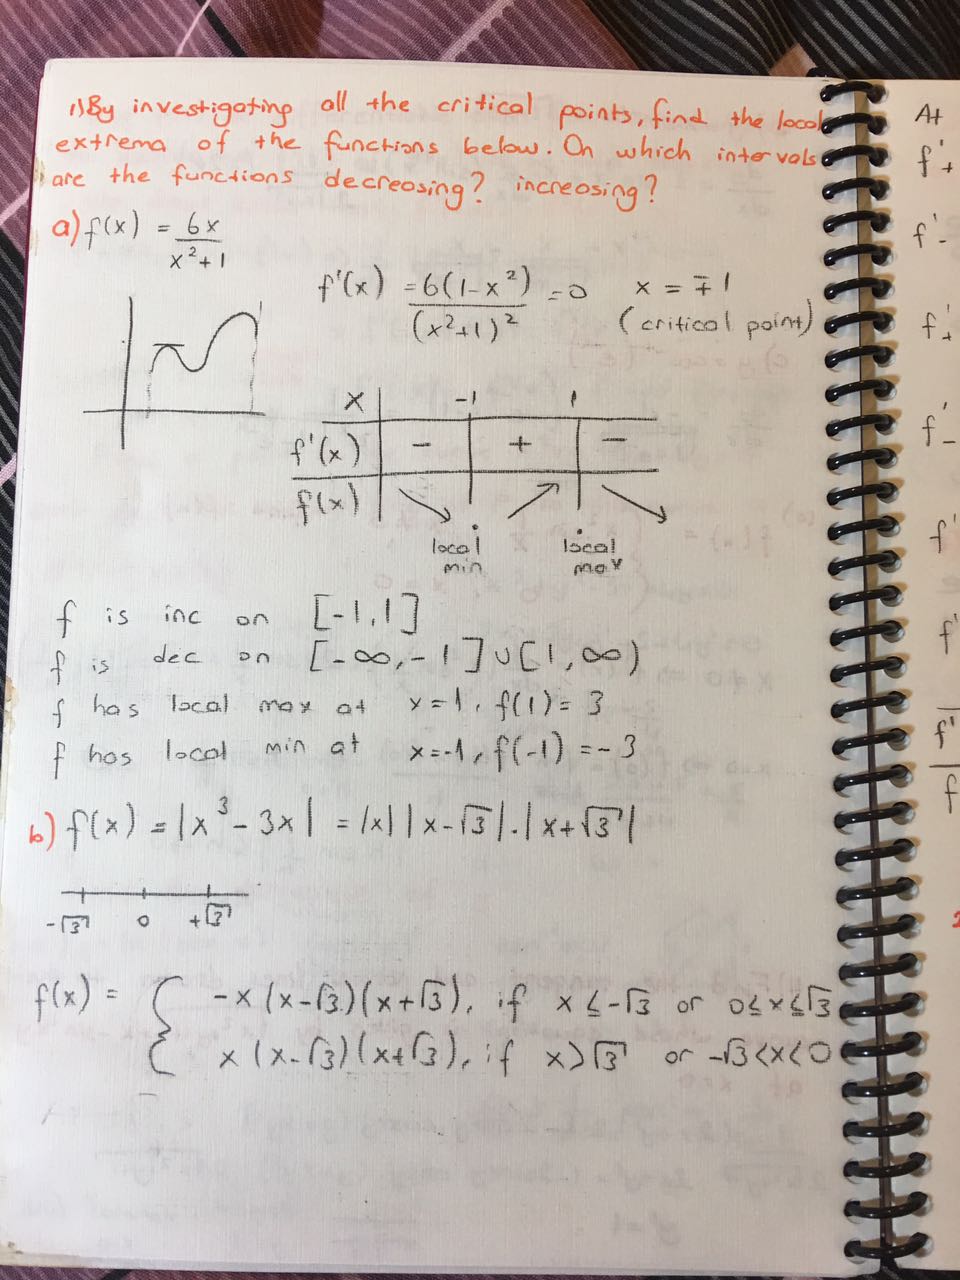 1) By investigating all the critical points, find the local
extrema of the functions below. On which intervals
are the functions decreosing? increosing?
a) f(x) = 6x / x²+1
f'(x) = 6(1-x²) / (x²+1)² = 0 x = ∓1
(critical point)
x -1 1
f'(x) - + -
f(x) ↘ ↗ ↘
local min local max
f is inc on [-1,1]
f is dec on [-∞,-1] ∪ [1,∞)
f has local max at x=1, f(1)= 3
f has local min at x=-1, f(-1) = -3
b) f(x) = |x³ - 3x| = |x| |x-√3| . |x+√3|
-√3 0 +√3
f(x) = { -x (x-√3)(x+√3), if x ≤ -√3 or 0≤x≤√3
x (x-√3)(x+√3), if x>√3 or -√3<x<0
At
f'+
f'-
f'+
f'-
f'
f'
f'
f'
f